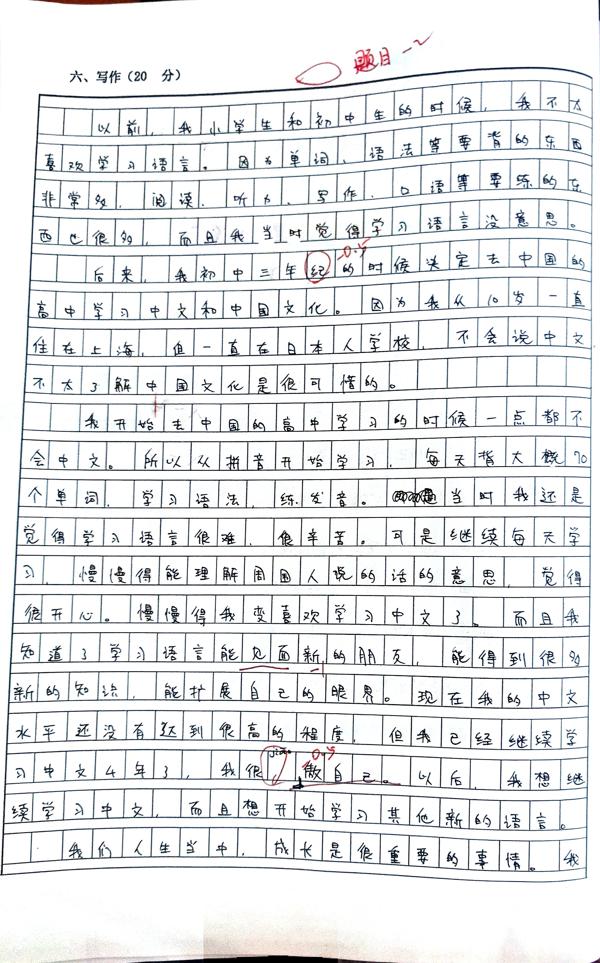 题目-2
六、写作（20 分）
以前，我小学生和初中生的时候，我不太
喜欢学习语言。因为单词、语法等要背的东西
非常多，阅读、听力、写作、口语等要练的东
西也很多，而且我当时觉得学习语言没意思。
-0.5
后来，我初中三年纪的时候决定去中国的
高中学习中文和中国文化。因为我从10岁一直
住在上海，但一直在日本人学校，不会说中文
不太了解中国文化是很可惜的。
我开始去中国的高中学习的时候一点都不
会中文。所以从拼音开始学习，每天背大概70
个单词，学习语法，练发音。当时我还是
觉得学习语言很难，很辛苦。可是继续每天学
习，慢慢得能理解周围人说的话的意思，觉得
很开心。慢慢得我变喜欢学习中文了。而且我
知道了学习语言能见面新的朋友，能得到很多
-1
新的知识，能扩展自己的眼界。现在我的中文
水平还没有达到很高的程度，但我已经继续学
jiāo -0.5
习中文4年了，我很 傲自己。以后，我想继
续学习中文，而且想开始学习其他新的语言。
我们人生当中，成长是很重要的事情。我